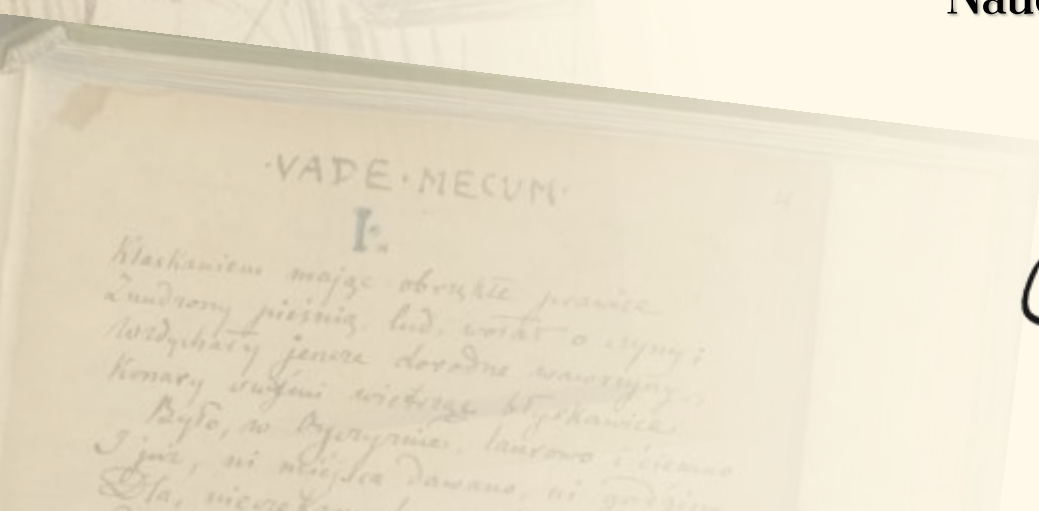 Nau
·VADE·MECUM·
I.
Klaskaniem mając obrzękłe prawice
Znudzony pieśnią, lud, wołał o czyny;
Wzdychały jeszcze dorodne wawrzyny,
Konary swymi wietrząc błyskawice.
Było, w Ojczyznie, laurowo i ciemno
I już, ni miejsca dawano, ni godziny
Dla, nieczekanych